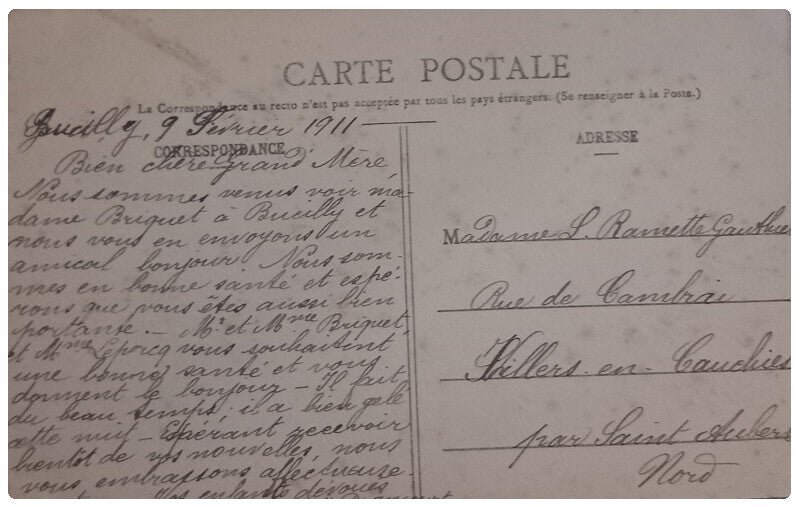 CARTE POSTALE
La Correspondance au recto n'est pas acceptée par tous les pays étrangers. (Se renseigner à la Poste.)
Bucilly, 9 Février 1911
CORRESPONDANCE
Bien chère Grand' Mère
Nous sommes venus voir ma-
dame Briquet à Bucilly et
nous vous en envoyons un
amical bonjour. Nous som-
mes en bonne santé et espé-
rons que vous êtes aussi bien
portante. — Mr et Mme Briquet
et Mme vous souhaitent
une bonne santé et vous
donnent le bonjour — Il fait
du beau temps, il a bien gelé
cette nuit — Espérant recevoir
bientôt de vos nouvelles, nous
vous embrassons affectueuse-
Vos enfants dévoués
ADRESSE
Madame L. Ramette Gauthie
Rue de Cambrai
Villers-en-Cauchies
par Saint Aubert
Nord